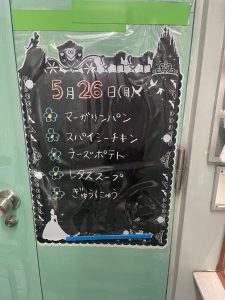 5月26日(月)
マーガリンパン
スパイシーチキン
チーズポテト
レタススープ
ぎゅうにゅう